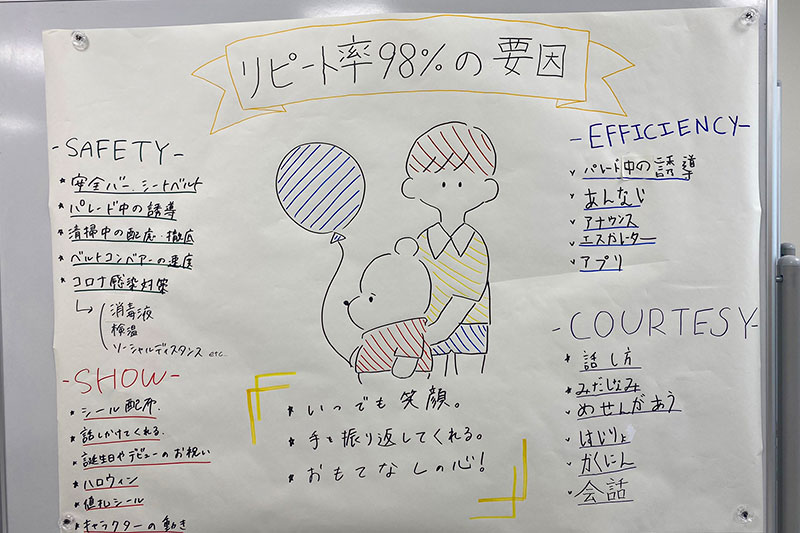 リピート率98%の要因
-SAFETY-
* 安全バー、シートベルト
* パレード中の誘導
* 清掃中の配慮・徹底
* ベルトコンベアーの速度
* コロナ感染対策
消毒液
検温
ソーシャルディスタンス etc.
-SHOW-
* シール配布
* 話しかけてくれる
* 誕生日やデビューのお祝い
* ハロウィン
* 値札シール
* キャラクターの動き
* いつでも笑顔。
* 手を振り返してくれる。
* おもてなしの心!
-EFFICIENCY-
v パレード中の誘導
v あんない
v アナウンス
v エスカレーター
v アプリ
-COURTESY-
* 話し方
* みだしなみ
v めせんがあう
v はじりょ
v かくにん
v 会話